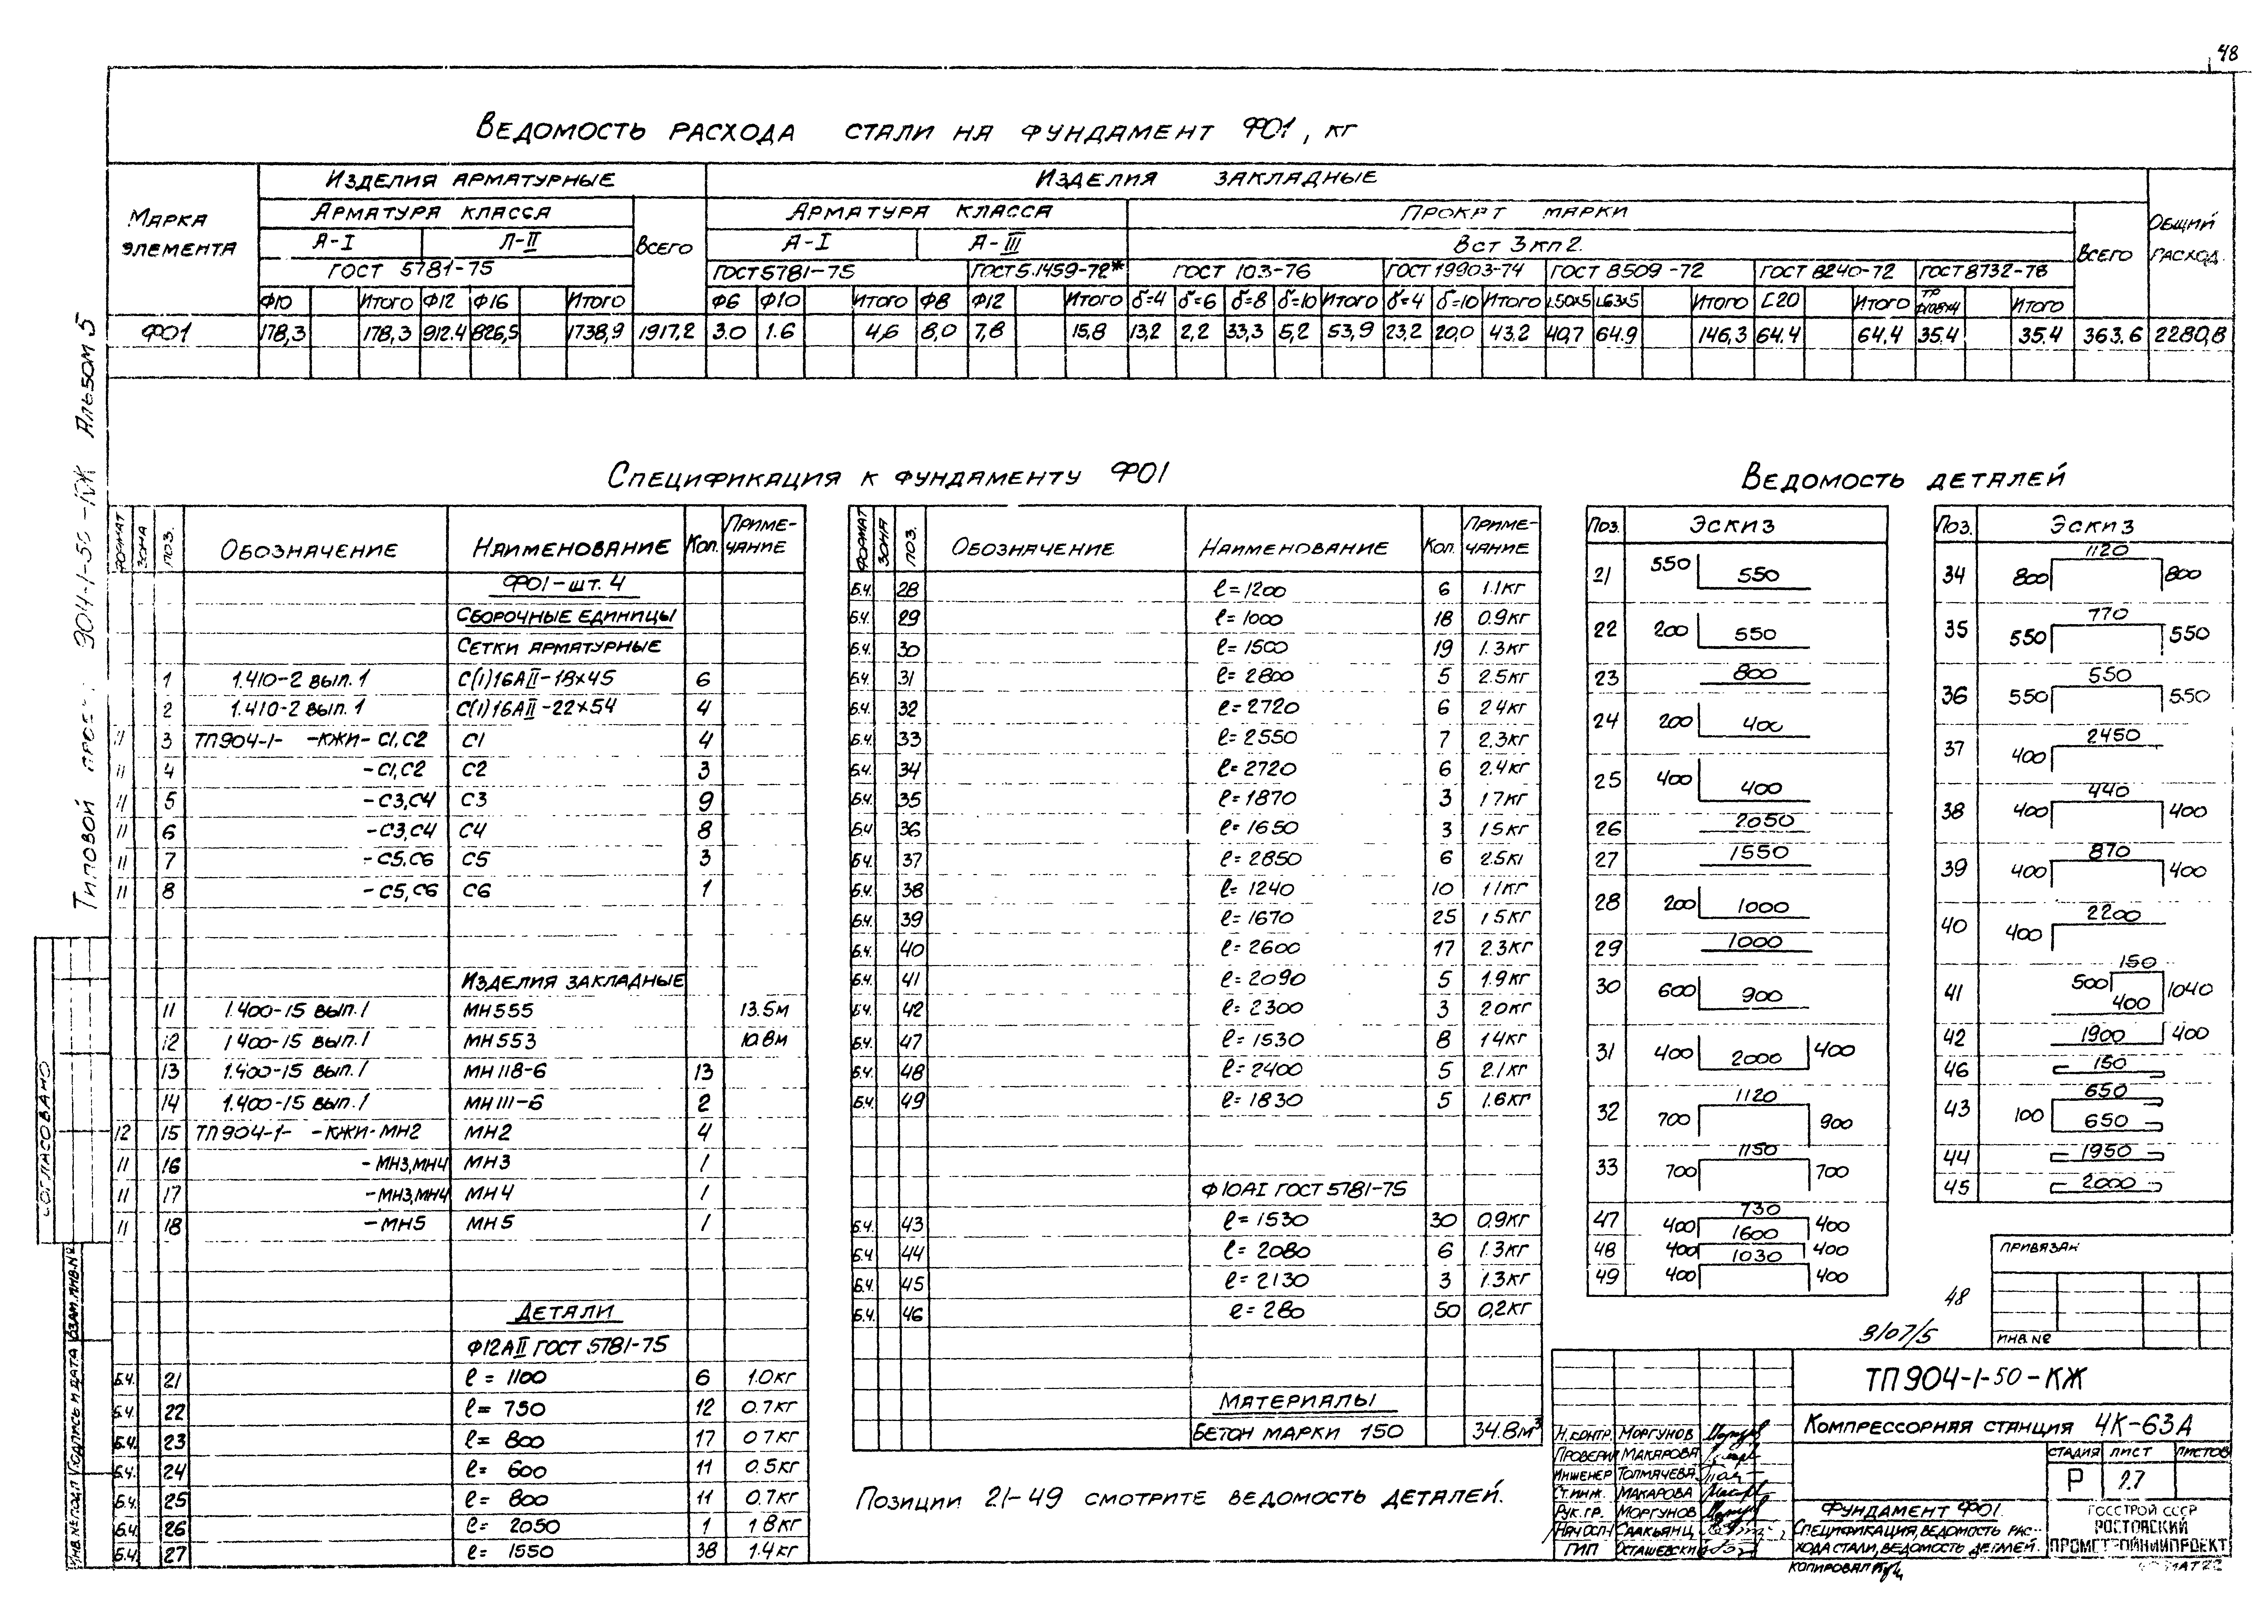 48
Ведомость расхода стали на фундамент ФО1, кг
Марка элемента
Изделия арматурные
Изделия закладные
Общий расход
Арматура класса
Всего
Арматура класса
Прокат марки
Всего
А-I А-II
А-I А-III
Вст 3кп2.
ГОСТ 5781-75
ГОСТ 5781-75 ГОСТ 5.1459-72* ГОСТ 103-76 ГОСТ 19903-74 ГОСТ 8509-72 ГОСТ 8240-72 ГОСТ 8732-78
Ф10 Итого Ф12 Ф16 Итого Ф6 Ф10 Итого Ф8 Ф12 Итого δ=4 δ=6 δ=8 δ=10 Итого δ=4 δ=10 Итого L50х5 L63х5 Итого С20 Итого Итого
ФО1 178,3 178,3 912.4 826,5 1738,9 1917,2 3.0 1.6 4,6 8,0 7,8 15,8 13,2 2,2 33,3 5,2 53,9 23,2 20,0 43,2 40,7 64.9 146,3 64.4 64.4 35.4 35.4 363.6 2280,8
Типовой 904-1-50-КЖ Альбом 5
Спецификация к фундаменту ФО1
Формат Зона Поз. Обозначение Наименование Кол. Примечание
ФО1-шт. 4
Сборочные единицы
Сетки арматурные
1 1.410-2 вып. 1 С(1)16АII-18х45 6
2 1.410-2 вып. 1 С(1)16АII-22х54 4
11 3 ТП904-1- -КЖИ-С1,С2 С1 4
11 4 -С1,С2 С2 3
11 5 -С3,С4 С3 9
11 6 -С3,С4 С4 8
11 7 -С5,С6 С5 3
11 8 -С5,С6 С6 1
Изделия закладные
11 1.400-15 вып. 1 МН555 13.5м
12 1400-15 вып. 1 МН553 10.8м
13 1.400-15 вып. 1 МН118-6 13
14 1.400-15 вып. 1 МН111-6 2
12 15 ТП904-1- -КЖИ-МН2 МН2 4
11 16 -МН3,МН4 МН3 1
11 17 -МН3,МН4 МН4 1
11 18 -МН5 МН5 1
Детали
Ф12АII ГОСТ 5781-75
Б.ч. 21 ℓ = 1100 6 1.0кг
Б.ч. 22 ℓ = 750 12 0.7кг
Б.ч. 23 ℓ = 800 17 07кг
Б.ч. 24 ℓ = 600 11 0.5кг
Б.ч. 25 ℓ = 800 11 0.7кг
Б.ч. 26 ℓ = 2050 1 18кг
Б.ч. 27 ℓ = 1550 38 1.4кг
Формат Зона Поз. Обозначение Наименование Кол. Примечание
Б.ч. 28 ℓ=1200 6 1.1кг
Б.ч. 29 ℓ=1000 18 0.9кг
Б.ч. 30 ℓ=1500 19 1.3кг
Б.ч. 31 ℓ=2800 5 2.5кг
Б.ч. 32 ℓ=2720 6 24кг
Б.ч. 33 ℓ=2550 7 2,3кг
Б.ч. 34 ℓ=2720 6 2.4кг
Б.ч. 35 ℓ=1870 3 17кг
Б.ч. 36 ℓ=1650 3 15кг
Б.ч. 37 ℓ=2850 6 2.5кг
Б.ч. 38 ℓ=1240 10 11кг
Б.ч. 39 ℓ=1670 25 15кг
Б.ч. 40 ℓ=2600 17 2.3кг
Б.ч. 41 ℓ=2090 5 1.9кг
Б.ч. 42 ℓ=2300 3 20кг
Б.ч. 47 ℓ=1530 8 14кг
Б.ч. 48 ℓ=2400 5 2.1кг
Б.ч. 49 ℓ=1830 5 1.6кг
Ф10АI ГОСТ 5781-75
Б.ч. 43 ℓ=1530 30 0.9кг
Б.ч. 44 ℓ=2080 6 1.3кг
Б.ч. 45 ℓ=2130 3 1.3кг
Б.ч. 46 ℓ=280 50 0,2кг
Материалы
Бетон марки 150 34.8м³
Позиции 21-49 смотрите ведомость деталей.
Ведомость деталей
Поз. Эскиз
21 550 550
22 200 550
23 800
24 200 400
25 400 400
26 2050
27 1550
28 200 1000
29 1000
30 600 900
31 400 2000 400
32 700 1120 900
33 700 1150 700
47 400 730 400
48 400 1600 400
49 400 1030 400
Поз. Эскиз
34 800 1120 800
35 550 770 550
36 550 550 550
37 400 2450
38 400 440 400
39 400 870 400
40 400 2200
41 500 150 400 1040
42 1900 400
46 150
43 100 650 650
44 1950
45 2000
Привязан
Инв. №
48
3107/5
ТП904-1-50-КЖ
Компрессорная станция 4К-63А
Стадия Лист Листов
Р 27
Н.контр. Моргунов
Проверил Макарова
Инженер Толмачева
Ст.инж. Макарова
Рук.гр. Моргунов
Нач.осп-1 Саакьянц
ГИП Осташевский
Фундамент ФО1.
Спецификация, ведомость расхода стали, ведомость деталей.
Госстрой СССР
Ростовский
Промстройниипроект
Копировал
Формат 22
Согласовано
Инв.№ подл. Подпись и дата Взам.инв.№